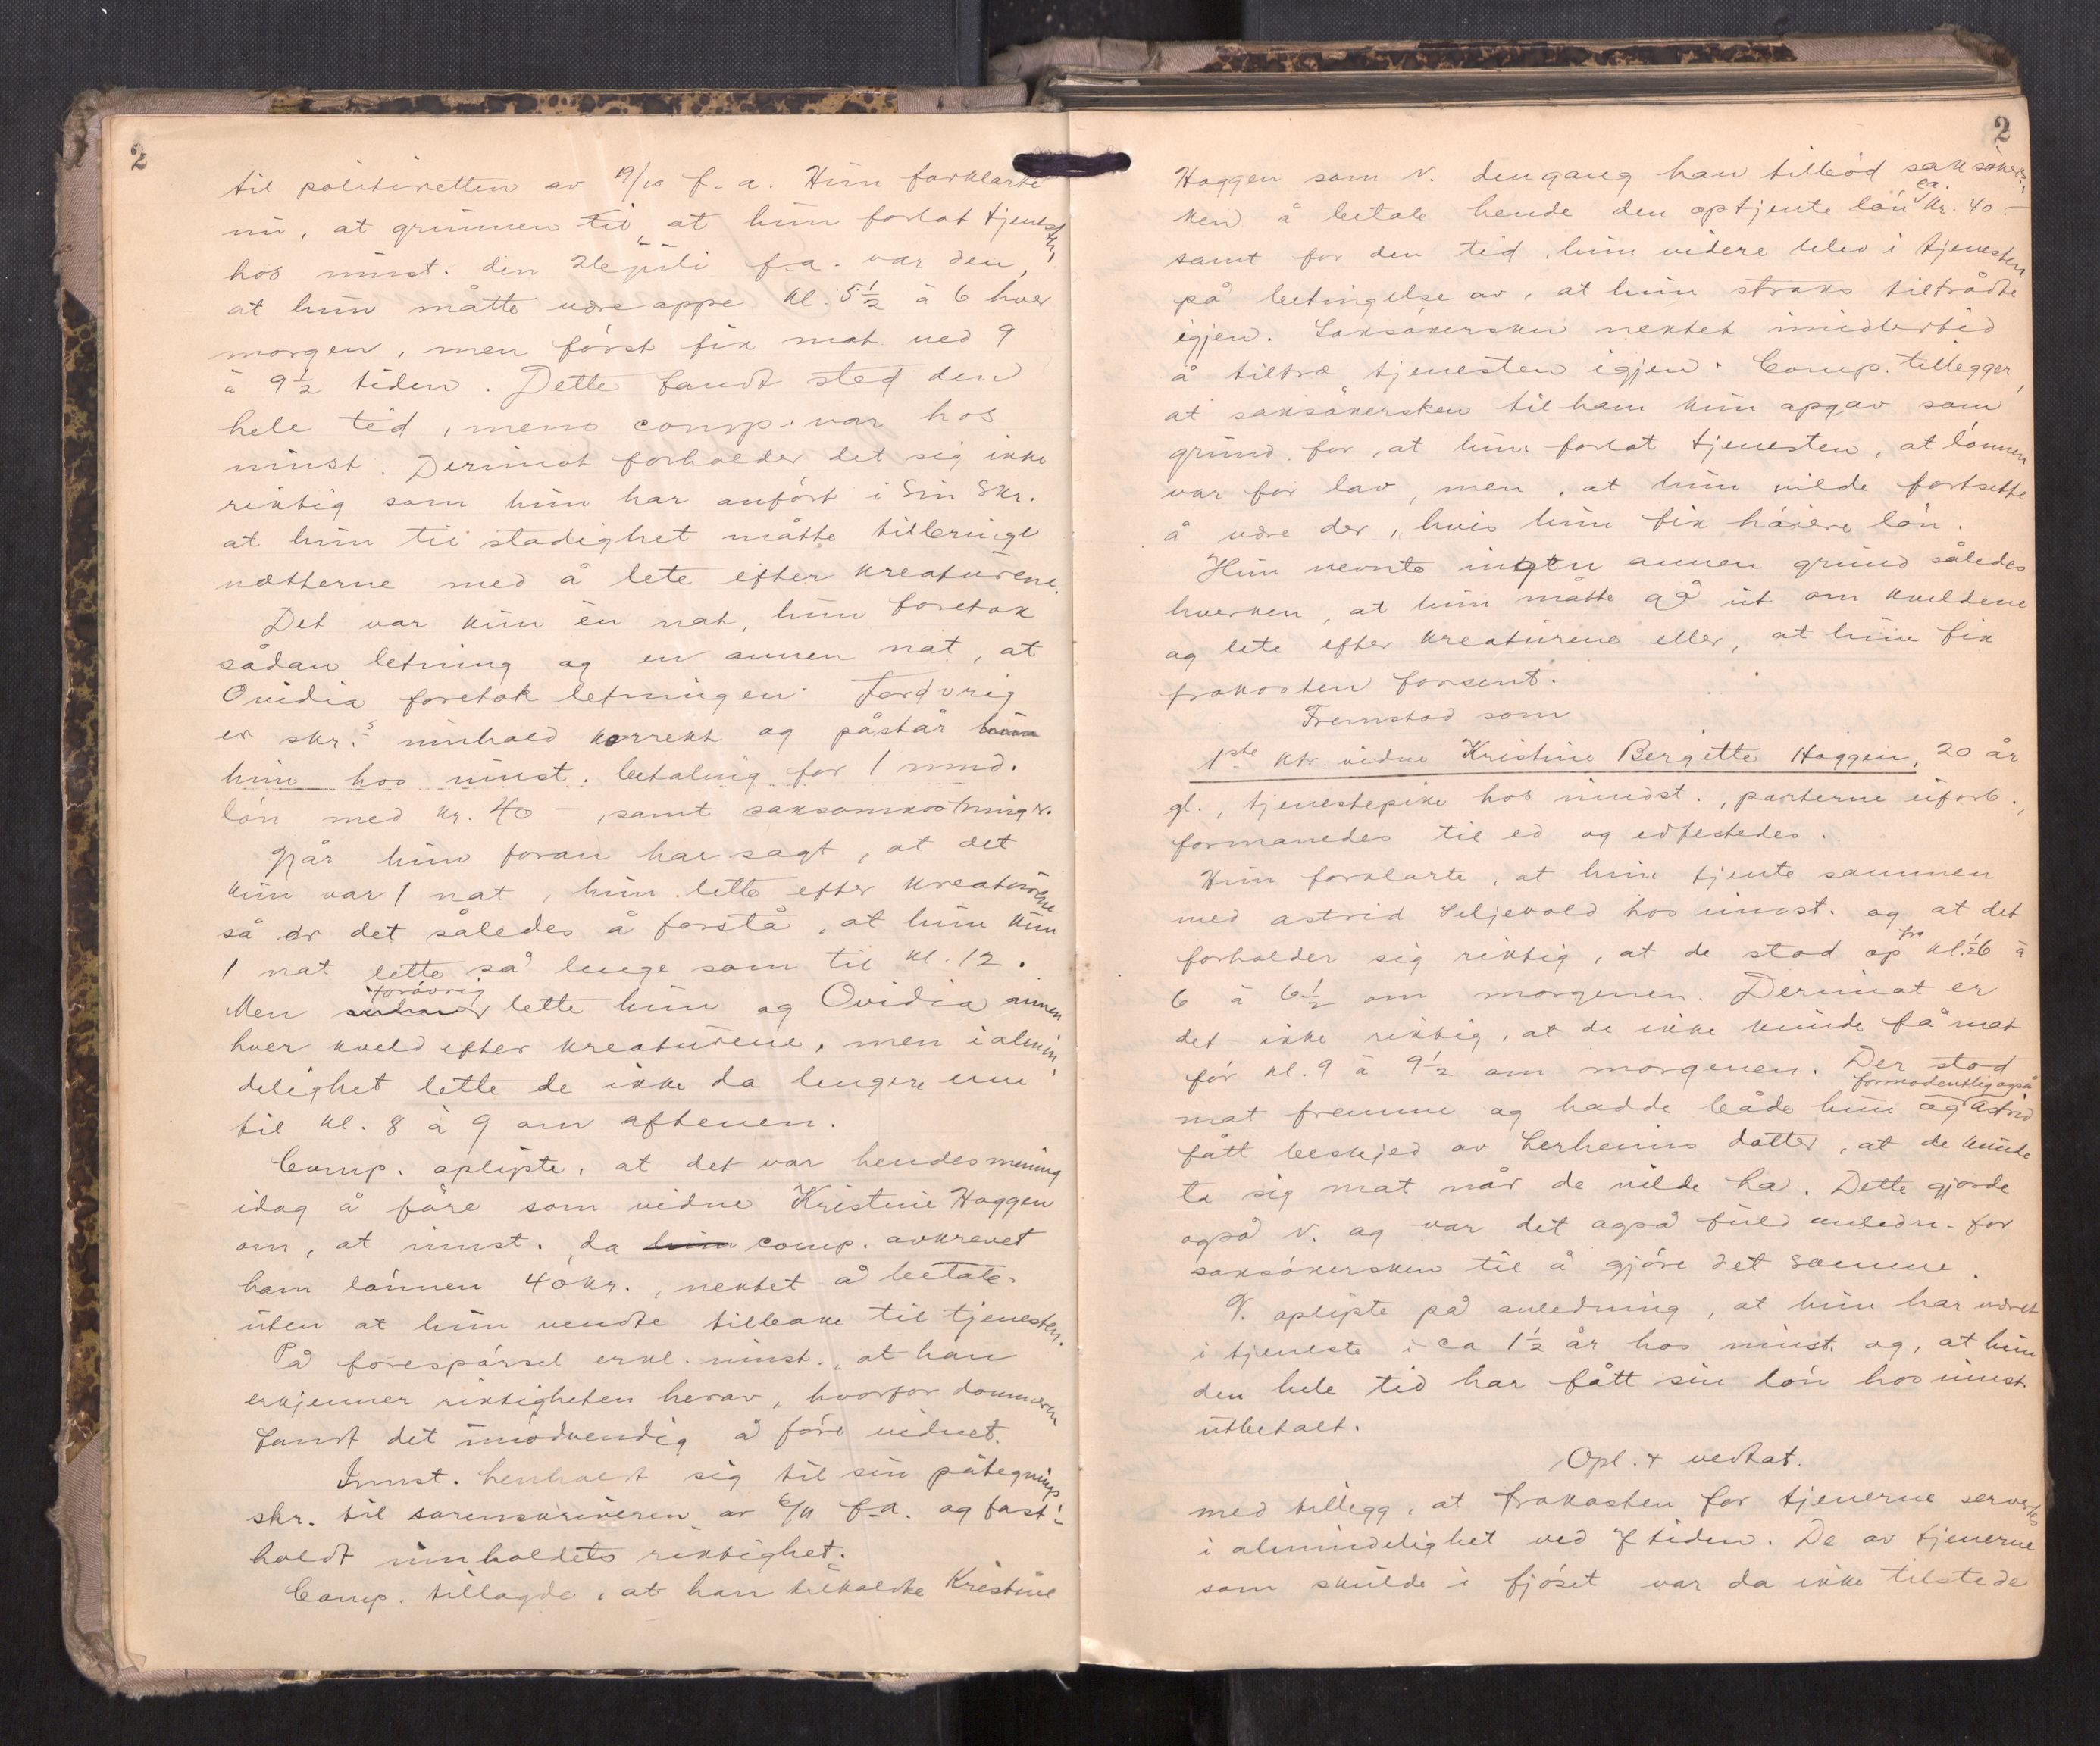 2
til politiretten av 19/10 f.a. Hun forklarte
nu, at grunnen til, at hun forlot tjenesten
hos innst. den 26 juli f.a. var den,
at hun måtte være oppe kl. 5½ à 6 hver
morgen, men först fik mat ved 9
à 9½ tiden. Dette fandt sted den
hele tid, mens comp. var hos
innst. Derimot forholder det sig ikke
riktig som hun har anfört i sin skr.
at hun til stadighet måtte tilbringe
nætterne med å lete efter kreaturene.
Det var kun én nat, hun foretok
sådan letning og en annen nat, at
Ovidia foretok letningen. Forövrig
er skr.s innhold korrekt og påstår
hun hos innst. betaling for 1 mnd.
lön med kr. 40 –, samt saksomkostninger.
Når hun foran har sagt, at det
kun var 1 nat, hun lette efter kreaturene
så er det således å forstå, at hun kun
1 nat lette så lenge som til kl. 12.
Men forövrig lette hun og Ovidia annen
hver kveld efter kreaturene, men i almin-
delighet lette de ikke da lenger enn
til kl. 8 à 9 om aftenen.
Comp. oplyste, at det var hendes mening
idag å före som vidne Kristine Haggen
om, at innst. da hun comp. avkrevet
ham lönnen 40 kr., nektet å betale
uten at hun vendte tilbake til tjenesten.
På forespörsel erkl. innst., at han
erkjenner riktigheten herav, hvorfor dommeren
fandt det unödvendig å före vidnet.
Innst. henholdt sig til sin påtegnings
skr. til sorenskriveren av 6/11 f.a. og fast-
holdt innholdets riktighet.
Comp. tillagde, at han tilkaldte Kristine
2
Haggen som v. dengang han tilbód saksöker-
sken å betale hende den optjente lön ca. kr. 40.–
samt for den tid, hun videre blev i tjenesten
på betingelse av, at hun straks tiltrådte
igjen. Saksökersken nektet imidlertid
å tiltræ tjenesten igjen. Comp. tillegger,
at saksökersken til ham kun opgav som
grund for, at hun forlot tjenesten, at lönnen
var for lav, men, at hun vilde fortsette
å være der, hvis hun fik höiere lön.
Hun nevnte ingen annen grund således
hverken, at hun måtte gå ut om kveldene
og lete efter kreaturene eller, at hun fik
frokosten forsent.
Fremstod som
1ste ktr. vidne Kristine Bergitte Haggen, 20 år
gl., tjenestepike hos innst., parterne uforb.,
formanedes til ed og edfestedes.
Hun forklarte, at hun tjente sammen
med Astrid Seljevold hos innst. og at det
forholder sig riktig, at de stod op fra kl. ½6 à
6 à 6½ om morgenen. Derimot er
det ikke riktig, at de ikke kunde få mat
för kl. 9 à 9½ om morgenen. Der stod
mat fremme og hadde både hun og formodentlig også Astrid
fått beskjed av Lerheims datter, at de kunde
ta sig mat når de vilde ha. Dette gjorde
også v. og var det også fuld anledn. for
saksökersken til å gjöre det samme.
V. oplyste på anledning, at hun har været
i tjeneste i ca 1½ år hos innst. og, at hun
den hele tid har fått sin lön hos innst.
utbetalt.
Opl. + vedtat.
med tillegg, at frokosten for tjenerne servertes
i almindelighet ved 7 tiden. De av tjenerne
som skulde i fjöset var da ikke tilstede